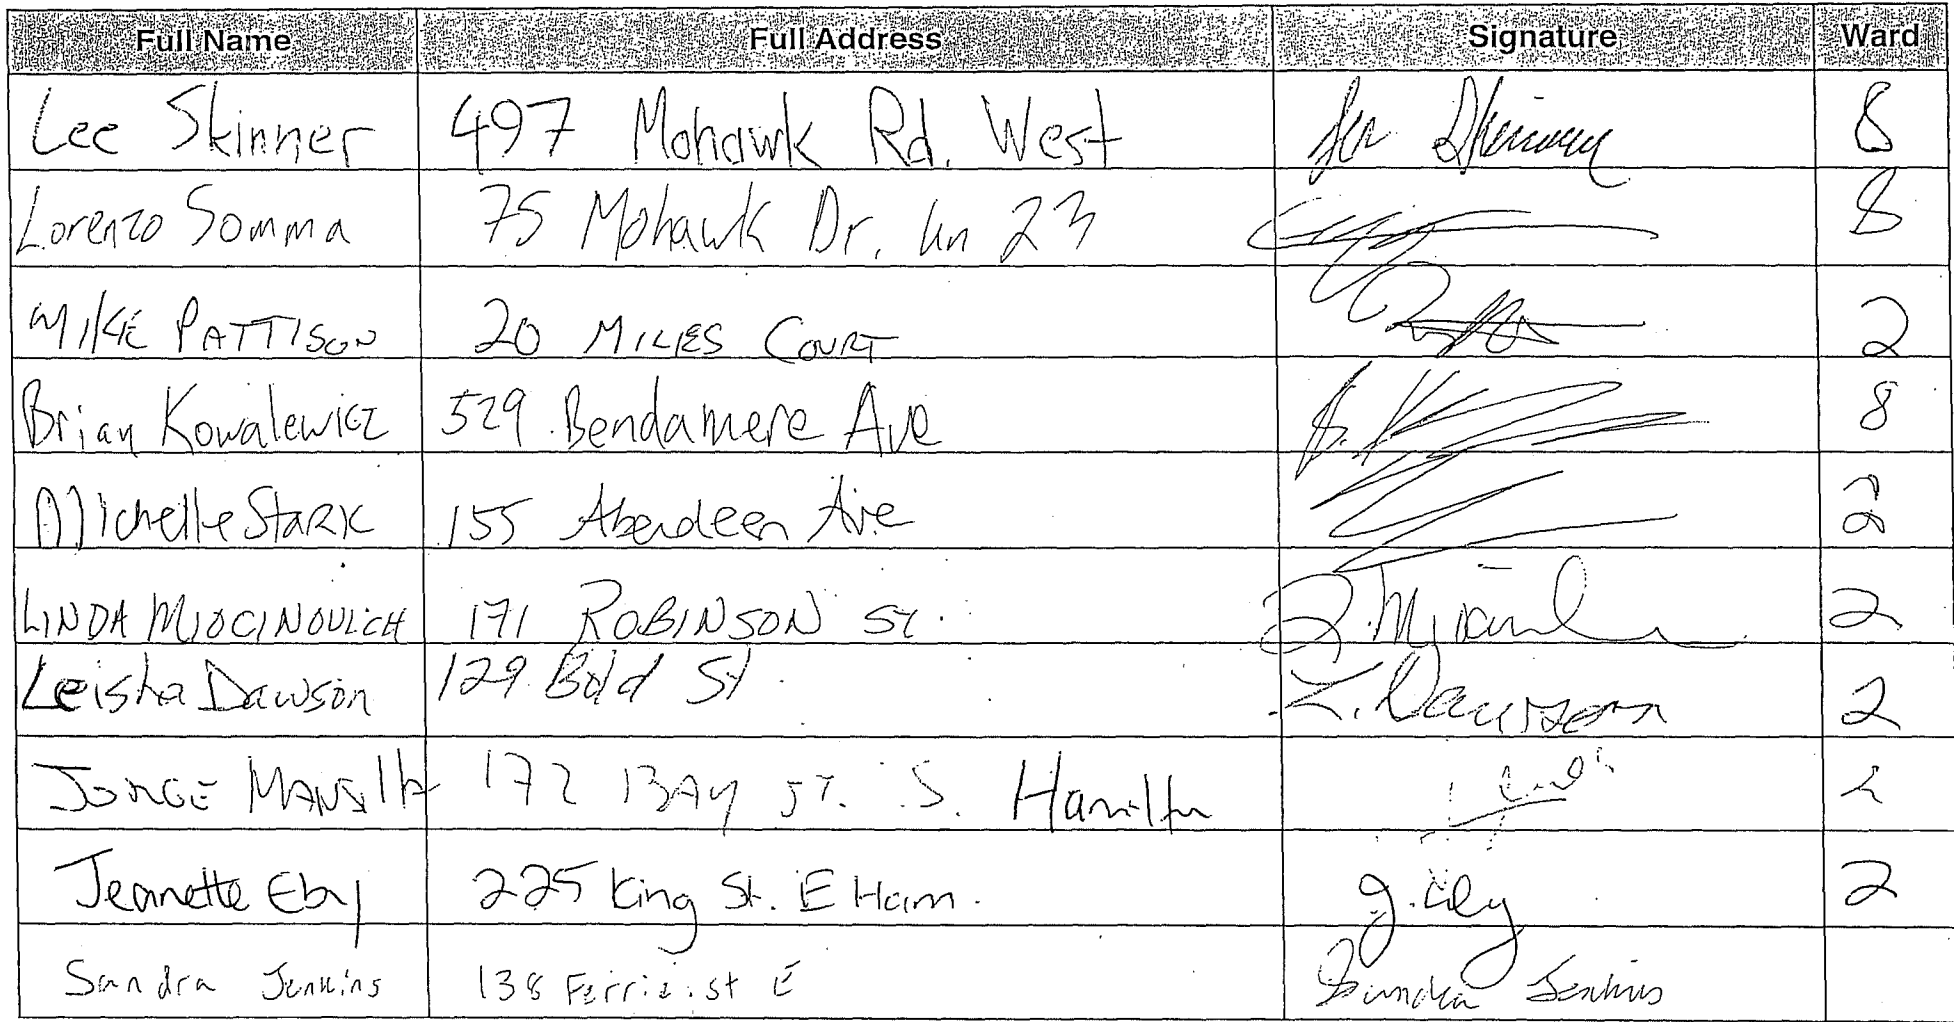 Full Name Full Address Signature Ward
Lee Skinner 497 Mohawk Rd. West Lee Skinner 8
Lorenzo Somma 75 Mohawk Dr. Un 23 8
MIKE PATTISON 20 MILES COURT 2
Brian Kowalewicz 529 Bendamere Ave B. K 8
Michelle Stark 155 Aberdeen Ave 2
LINDA MIOCINOVICH 171 ROBINSON ST. 2
Leisha Dawson 129 Bold St L. Dawson 2
JORGE MANSilla 172 BAY ST. S. Hamilton 2
Jeannette Eby 225 King St. E Ham. J. Eby 2
Sandra Jenkins 138 Ferrie st E Sandra Jenkins